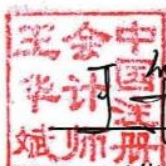 中国注册
会计师
王华斌